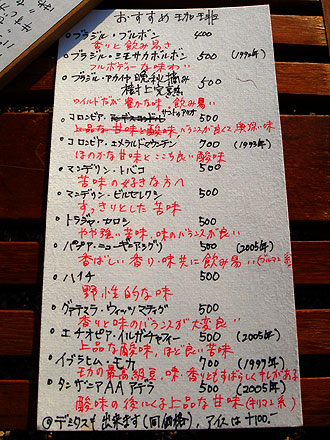 おすすめ珈琲
○ブラジル・ブルボン 400
香りと飲み易さ
○ブラジル・ミモサカボルボン 500 (1992年)
フルボディーな味わい
○ブラジル・アカイト晩秋摘み 500
樹上完熟
ワイルドだが豊かな味、飲み易い
○コロンビア・サントゥアリオ 500
上品な甘味と酸味、バランスが良くて奥深い味
○コロンビア・エメラルドマウンテン 700 (1993年)
ほのかな甘味とここち良い酸味
○マンデリン・トバコ 500
苦味の好きな方へ
○マンデリン・ビルセレクション 500
すっきりとした苦味
○トラジャ・カロシ 500
やや強い苦味、味のバランスが良い
○パプア・ニューギニアシグリ 500 (2005年)
香ばしい香り・味共に飲み易い(ブルマン系)
○ハイチ 500
野性的な味
○グァテマラ・ウィッツマティグ 500
香りと味のバランスが大変良い
○エチオピア・イルガチャフィー 500 (2005年)
上品な酸味、ほど良い苦味
○イブラヒム・モカ 700 (1997年)
モカの最高級豆、味香りともすばらしくキレがある
○タンザニアAAアデラ 500 (2005年)
酸味の後にくる上品な甘味(キリマン系)
◎デミタスも出来ます(同価格)、アイスは+100.-